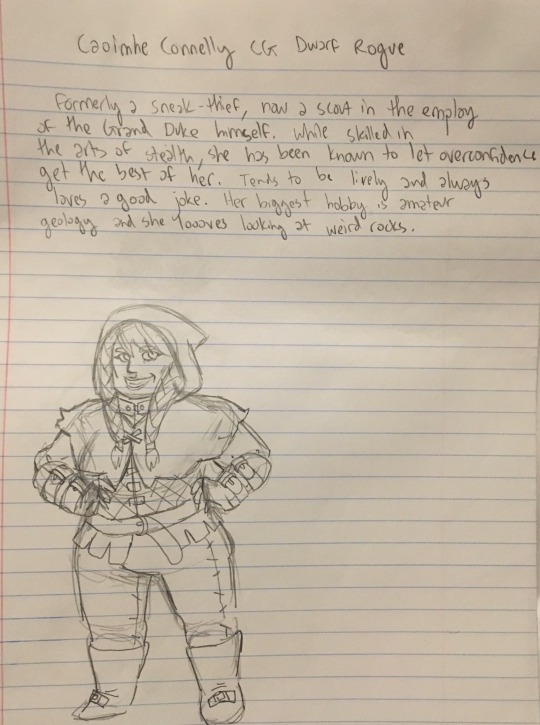 Caoimhe Connelly CG Dwarf Rogue
Formerly a sneak-thief, now a scout in the employ
of the Grand Duke himself. While skilled in
the arts of stealth, she has been known to let overconfidence
get the best of her. Tends to be lively and always
loves a good joke. Her biggest hobby is amateur
geology and she looooves looking at weird rocks.